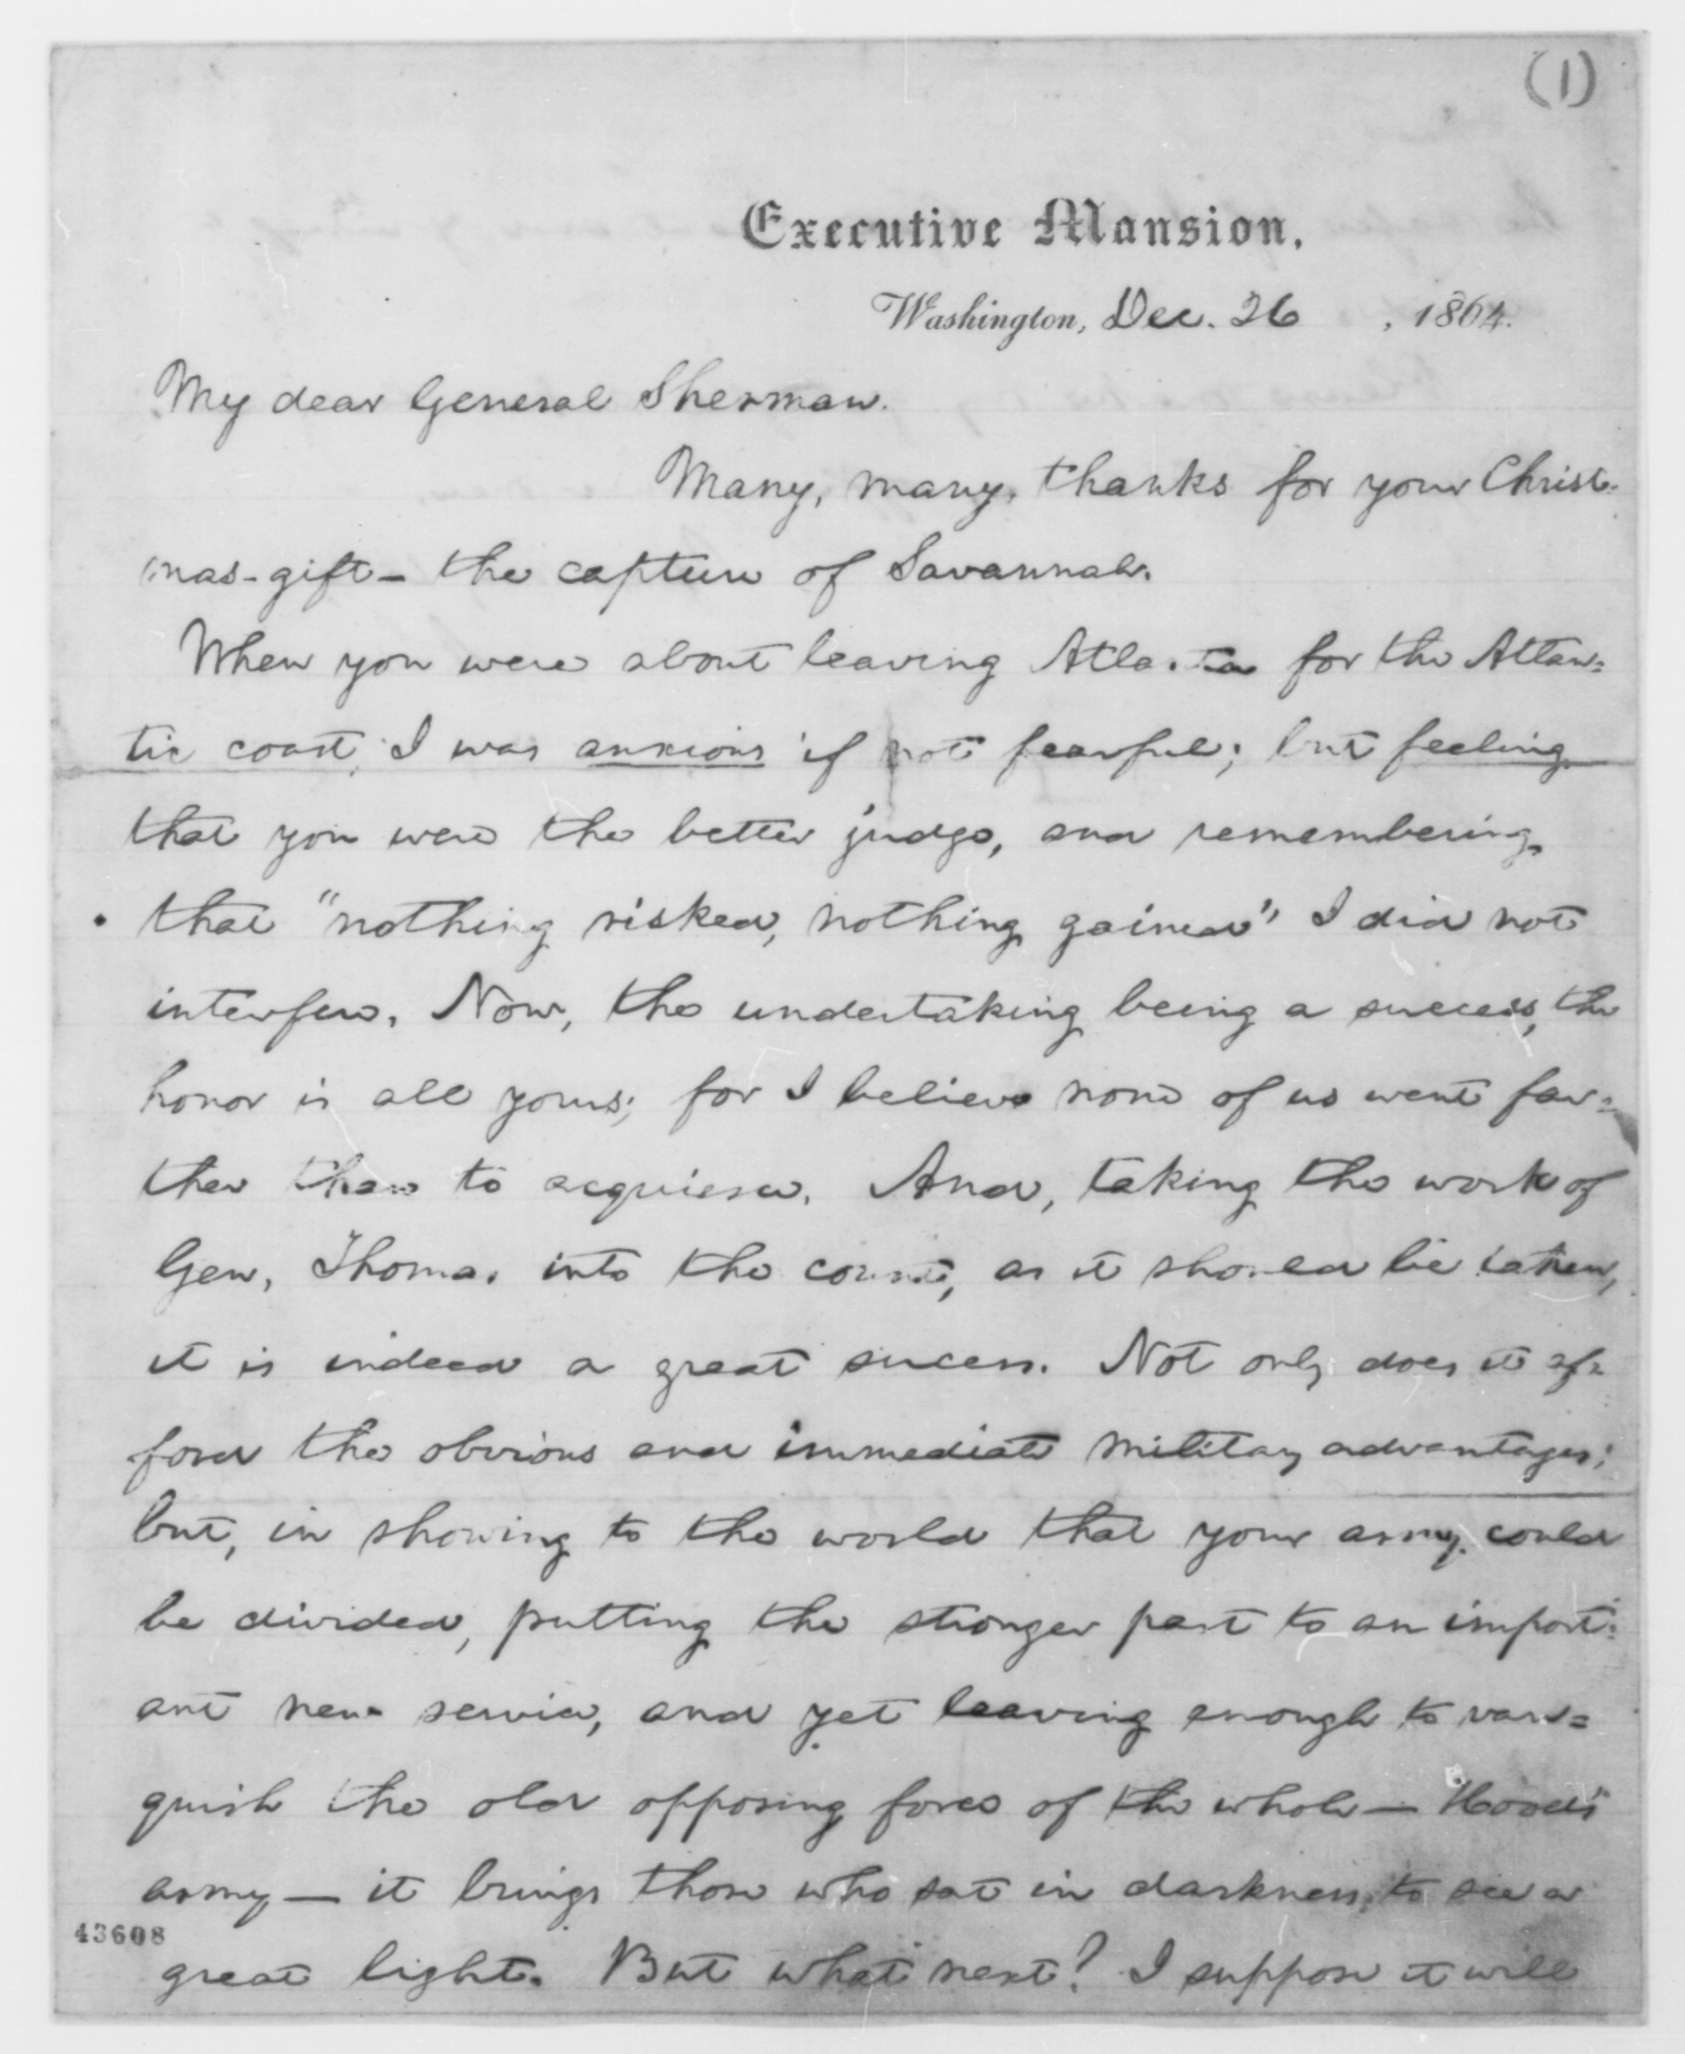 (1)
Executive Mansion,
Washington, Dec. 26, 1864.
My dear General Sherman.
Many, many, thanks for your Christ-
mas-gift — the capture of Savannah.
When you were about leaving Atlanta for the Atlan=
tic coast, I was anxious, if not fearful; but feeling
that you were the better judge, and remembering
that "nothing risked, nothing gained" I did not
interfere. Now, the undertaking being a success, the
honor is all yours; for I believe none of us went far=
ther than to acquiesce. And, taking the work of
Gen. Thomas into the count, as it should be taken,
it is indeed a great success. Not only does it af=
ford the obvious and immediate military advantages;
but, in showing to the world that your army could
be divided, putting the stronger part to an import=
ant new service, and yet leaving enough to van=
quish the old opposing force of the whole — Hood's
army — it brings those who sat in darkness, to see a
great light. But what next? I suppose it will
43608